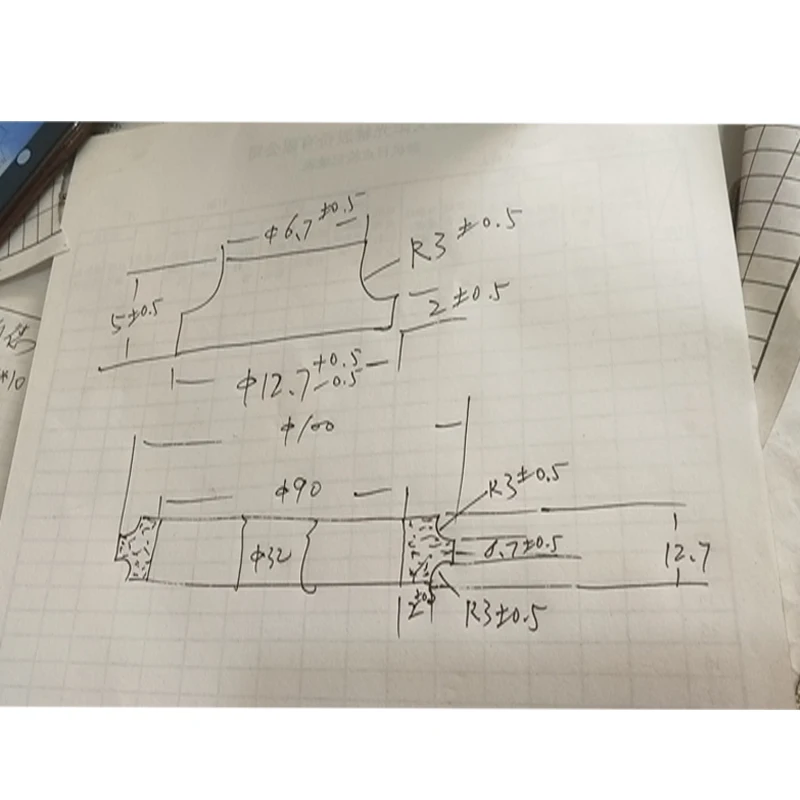 φ6.7±0.5
R3±0.5
5±0.5
2±0.5
φ12.7+0.5-0.5
φ100
φ90
R3±0.5
φ32
6.7±0.5
12.7
R3±0.5
*10